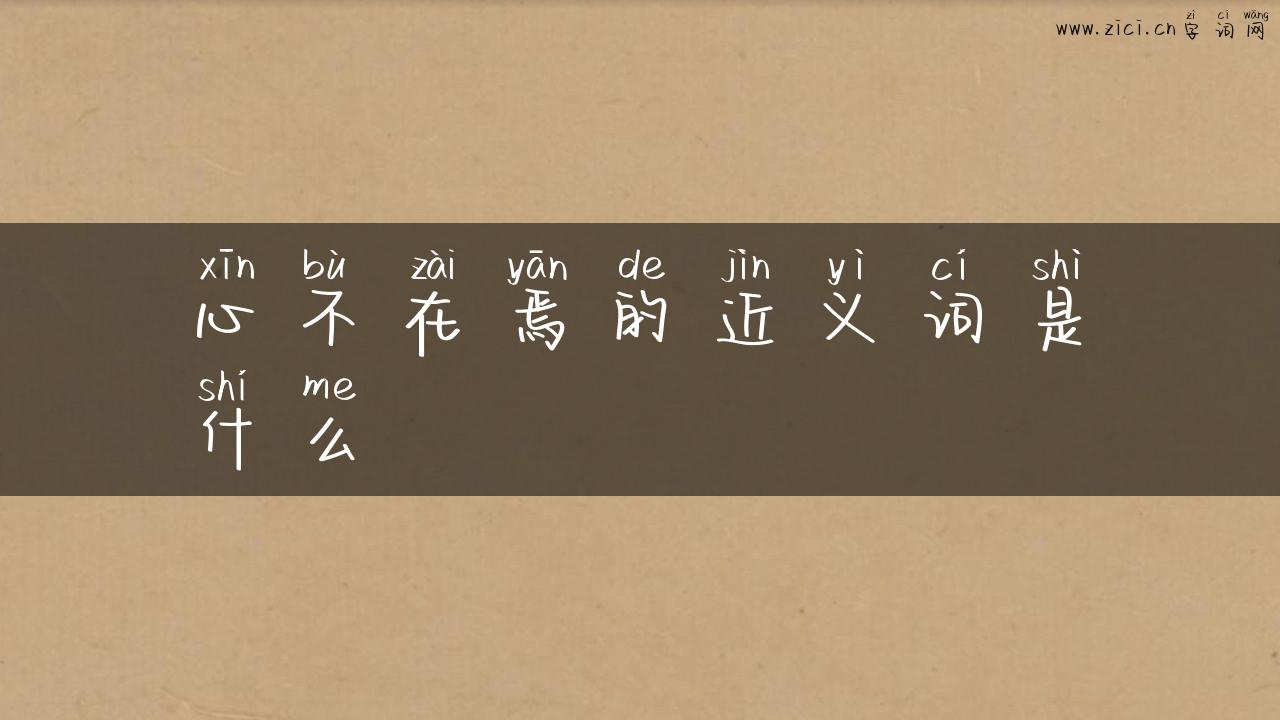 www.zici.cn 字词网
zì cí wǎng
xīn bù zài yān de jìn yì cí shì
心不在焉的近义词是
shí me
什么